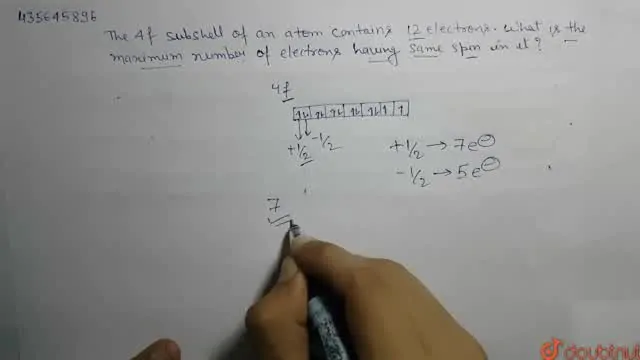 435645896
The 4f subshell of an atom contains 12 electrons. What is the
maximum number of electrons having same spin in it?
4f
+1/2 -1/2
+1/2 → 7e⊖
-1/2 → 5e⊖
7
doubtnut